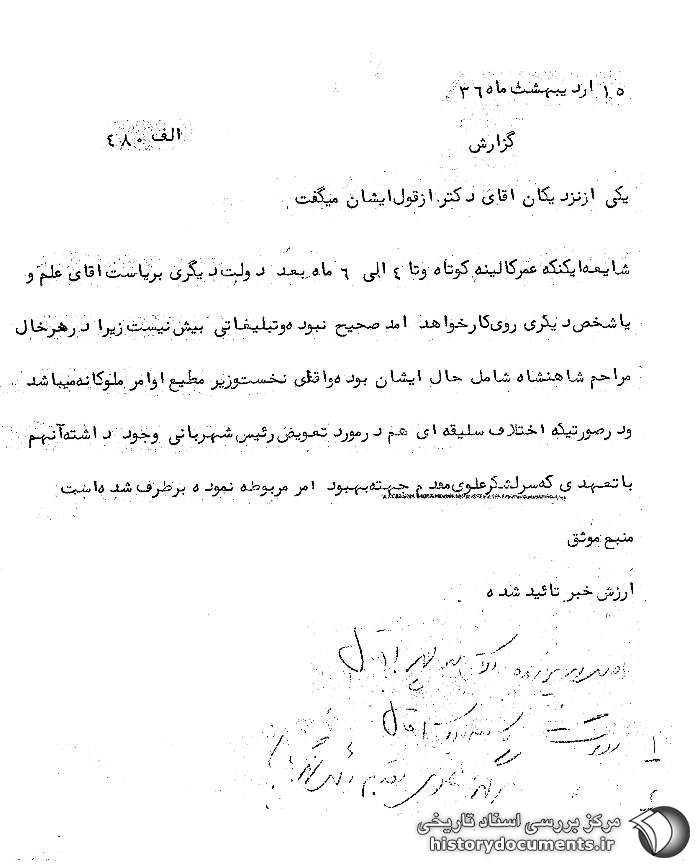 ۱۵ اردیبهشت ماه ۳۶
الف ۴۸۰
گزارش
یکی از نزدیکان اقای دکتر از قول ایشان میگفت
شایعه ایکنکه عمر کالینه کوتاه و تا ۴ الی ۶ ماه بعد دولت دیگری بریاست اقای علم و
یا شخص دیکری روی کار خواهد امد صحیح نبوده و تبلیغاتی بیش نیست زیرا در هر خال
مراحم شاهنشاه شامل حال ایشان بوده واقای نخست وزیر مطیع اوامر ملوکانه میباشد
ودر صورتیکه اختلاف سلیقه ای هم در مورد تعویض رئیس شهربانی وجود داشته آنهم
با تعهدی که سرلشکر علوی مقدم جهته بهبود امر مربوطه نموده برطرف شده است
منبع موثق
ارزش خبر تائید شده
۱
مرکز بررسی اسناد تاریخی
historydocuments.ir